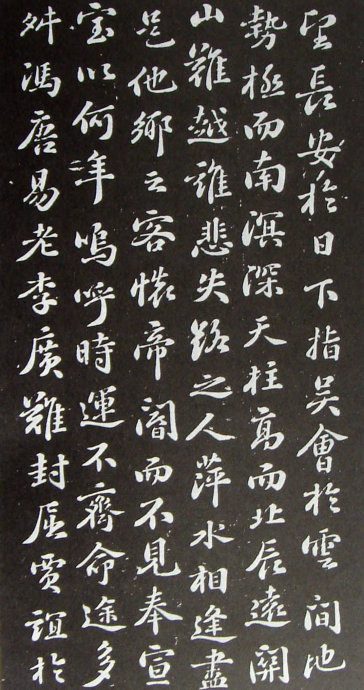 望長安於日下指吳會於雲間地
勢極而南溟深天柱高而北辰遠關
山難越誰悲失路之人萍水相逢盡
是他鄉之客懷帝閽而不見奉宣
室以何年嗚呼時運不齊命途多
舛馮唐易老李廣難封屈賈誼於